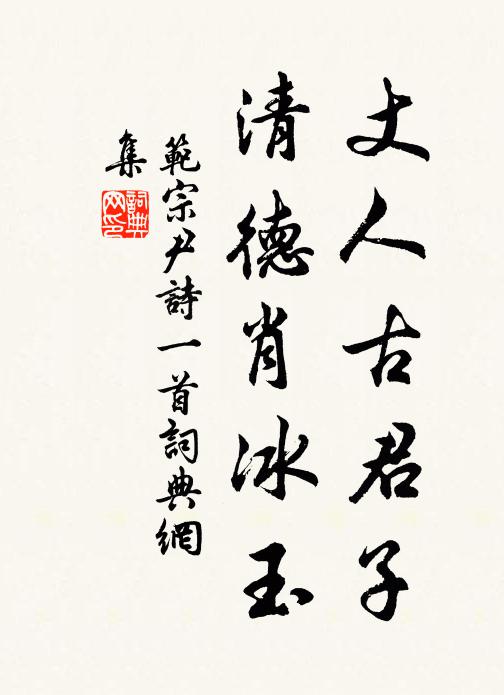 丈人古君子
清德肖冰玉
範宗尹詩一首詞典網
集
詞典网印